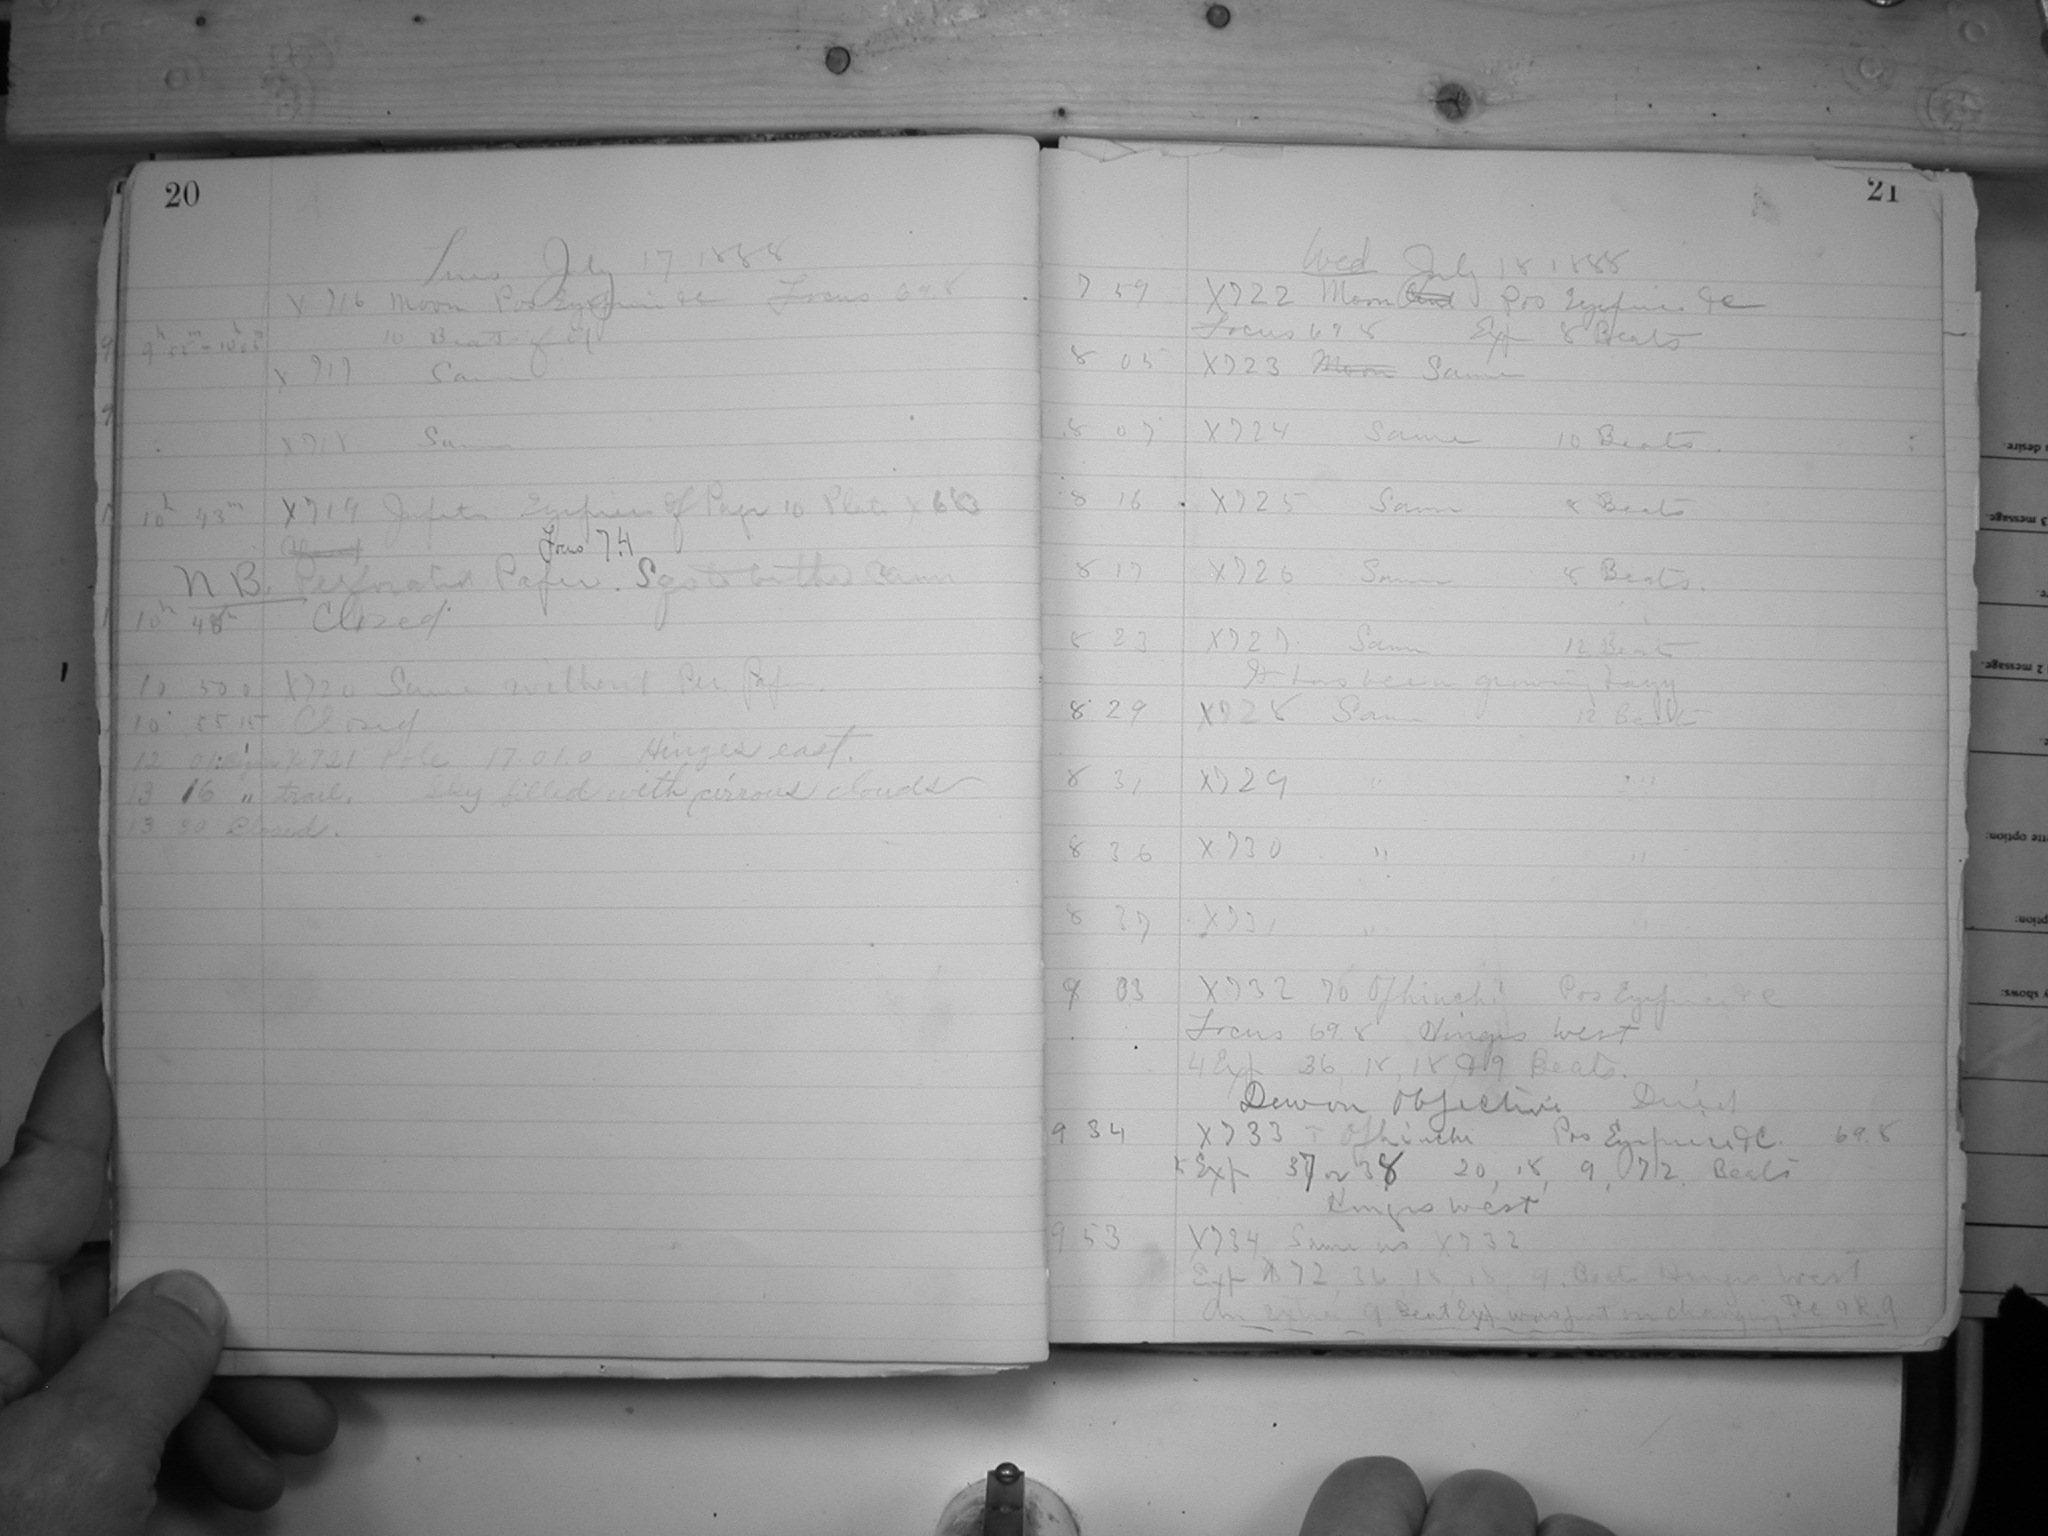 20
Tues July 17 1888
X 716 Moon Pos Eyepiece &c Focus 69.8
10 Beats
X 717 Same
X718 Same
10h 43m X719 Jupiter Eyepiece of Page 10 Plate X
Focus 7.4
N B. Perforated Paper.
10h 48m Closed
10 50 0 X720 Same without Per. Paper.
10 55 15 Closed
12 01 X721 Pole 17.01.0 Hinges east.
13 16 " trail. Sky filled with cirrous clouds
13 30 Closed.
21
Wed July 18 1888
7 59 X722 Moon Pos Eyepiece &c
Focus 69.8 Exp 8 Beats
8 05 X723 Moon Same
8 07 X724 Same 10 Beats.
8 16 X725 Same 8 Beats
8 17 X726 Same 8 Beats.
8 23 X727. Same 12 Beats
It has been growing hazy
8 29 X728 Same 12 Beats
8 31 X729 " "
8 36 X730 " "
8 37 X731 "
9 03 X732 70 Ophiuchi Pos Eyepiece &c
Focus 69.8 Hinges West
4 Exp 36, 18, 18, & 9 Beats.
Dew on Objective Dried
9 34 X733 Ophiuchi Pos Eyepiece &c. 69.8
5 Exp 37 or 38 20, 18, 9, 72 Beats
Hinges west
9 53 X734 Same as X732
Exp 72, 36, 18, 18, 9. Beats Hinges West
An extra 9 Beat Exp was put on changing